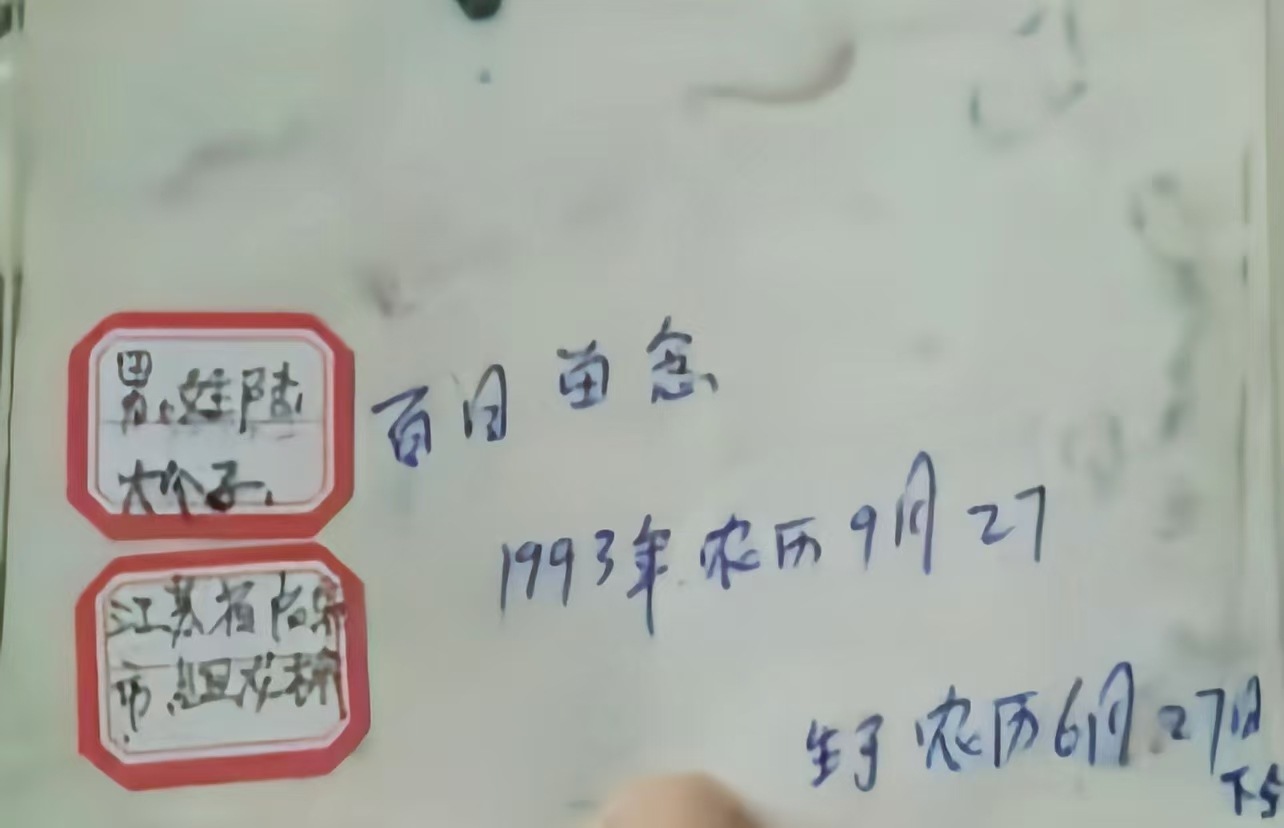 男.姓陆
大个子.
江苏省
市.
百日留念
1993年农历9月27
生于农历6月27日
下午